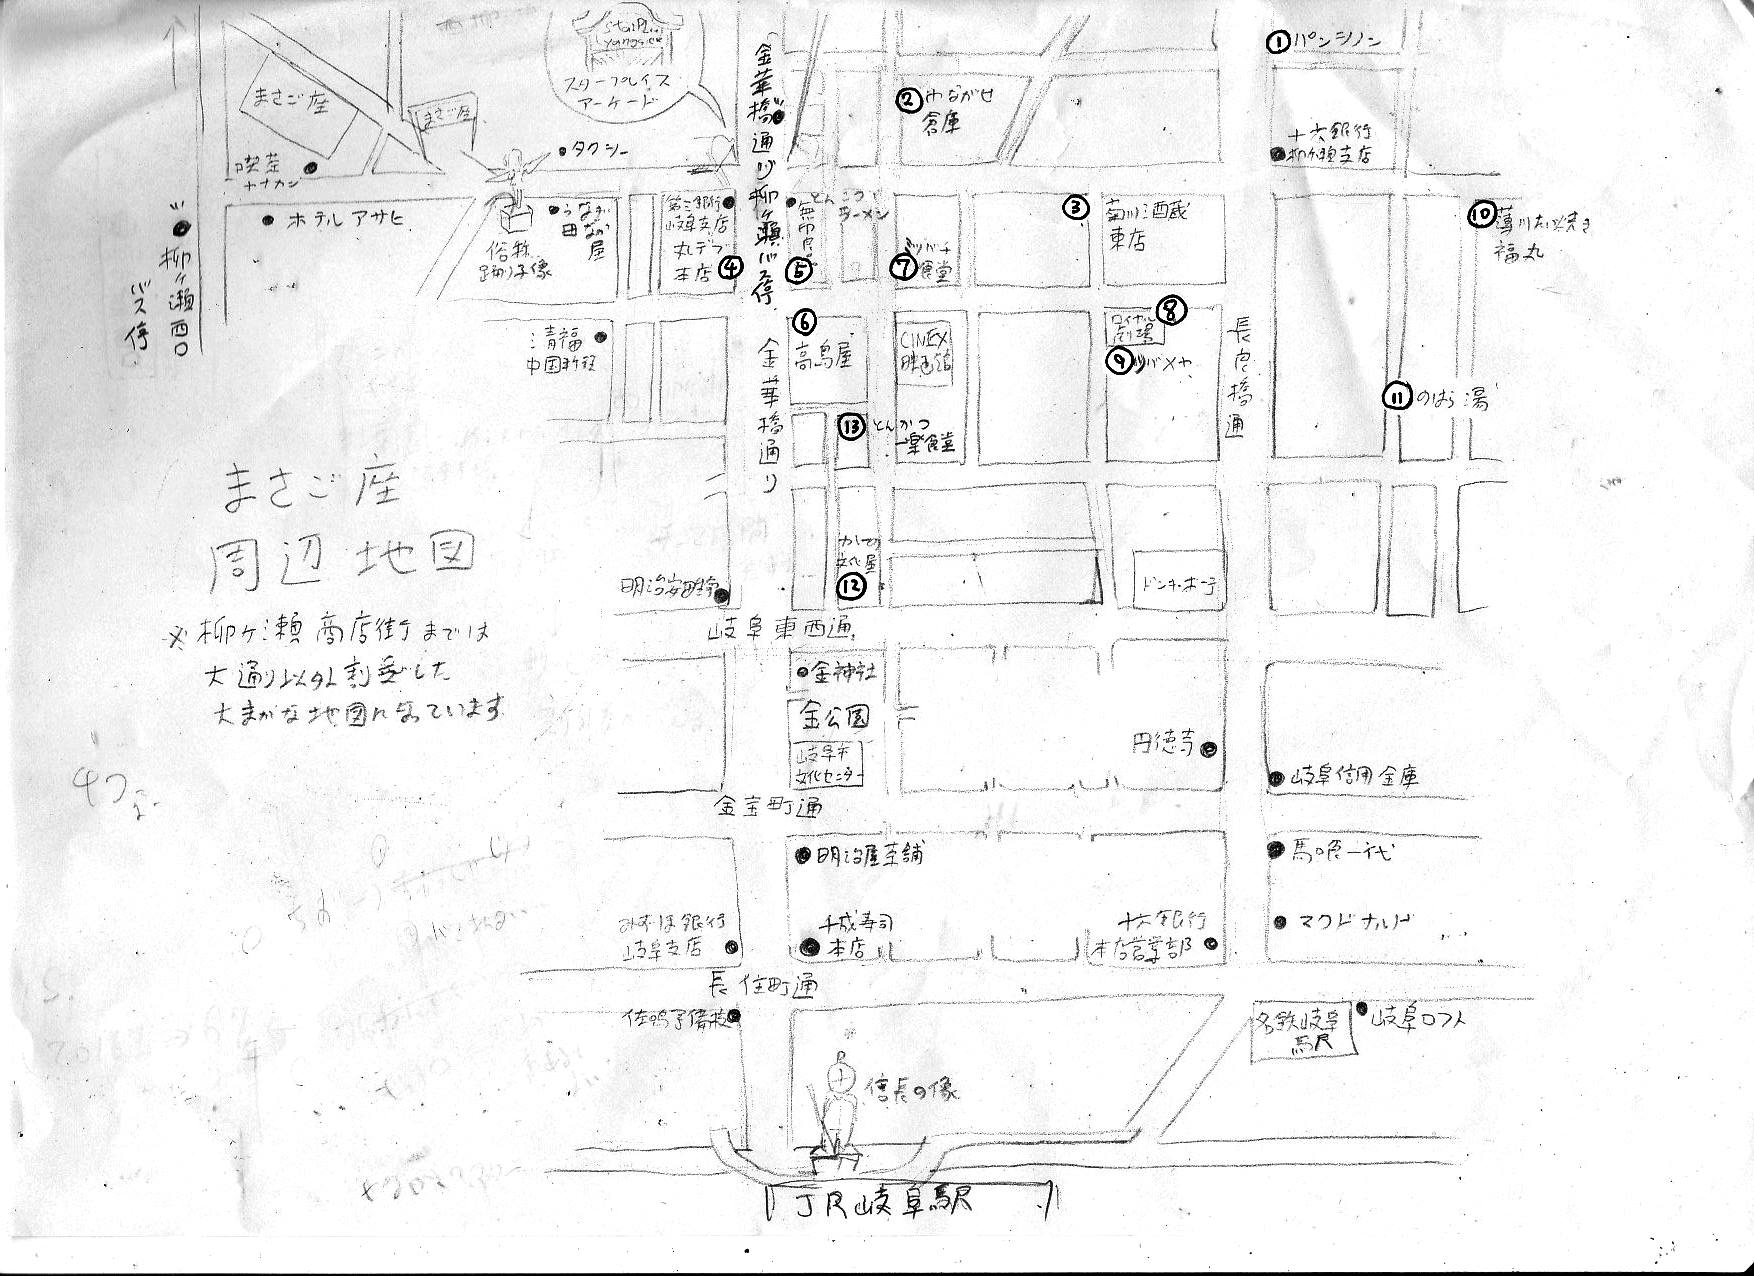 ① パンシノン
まさご座
まさご座
スタープレイス
アーケード
喫茶
・タクシー
金華橋通り柳ヶ瀬バス停
② やながせ
倉庫
十六銀行
柳ヶ瀬支店
柳ヶ瀬西口
バス停
ホテルアサヒ
俗称
踊り子像
うなぎ
田なか
屋
岐阜支店
丸デブ
本店 ④
とんこつ
ラーメン
⑤
⑦
食堂
③ 菊川酒蔵
東店
⑩ 薄川たい焼き
福丸
清福
中国料理
⑥
高島屋
CINEX
映画館
⑧
ロイヤル
劇場
⑨ ツバメヤ
長良橋通
⑪ のはら湯
金華橋通り
⑬ とんかつ
一楽食堂
まさご座
周辺地図
※柳ヶ瀬商店街までは
大通り以外割愛した
大まかな地図になっています
明治安田生命
文化屋
⑫
ドンキ・ホーテ
岐阜東西通
金神社
金公園
岐阜市
文化センター
円徳寺
岐阜信用金庫
金宝町通
明治屋茶舗
馬喰一代
みずほ銀行
岐阜支店
千成寿司
本店
十六銀行
本店営業部
マクドナルド
長住町通
佐鳴予備校
名鉄岐阜
駅
岐阜ロフト
信長の像
JR岐阜駅